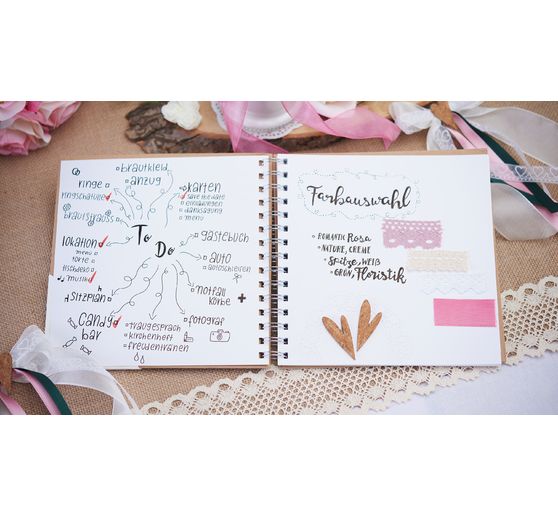 brautkleid
anzug
ringe
ringschatulle
brautstrauss
karten
save the date
einladungen
danksagung
menü
To
Do
lokation
menü
torte
tischdeko
musik
gästebuch
auto
autoschleifen
sitzplan
notfall
körbe
candy
bar
fotograf
traugespräch
kirchenheft
freudentränen
Farbauswahl
Romantik Rosa
Nature, Creme
Spitze, Weiß
Grün, Floristik